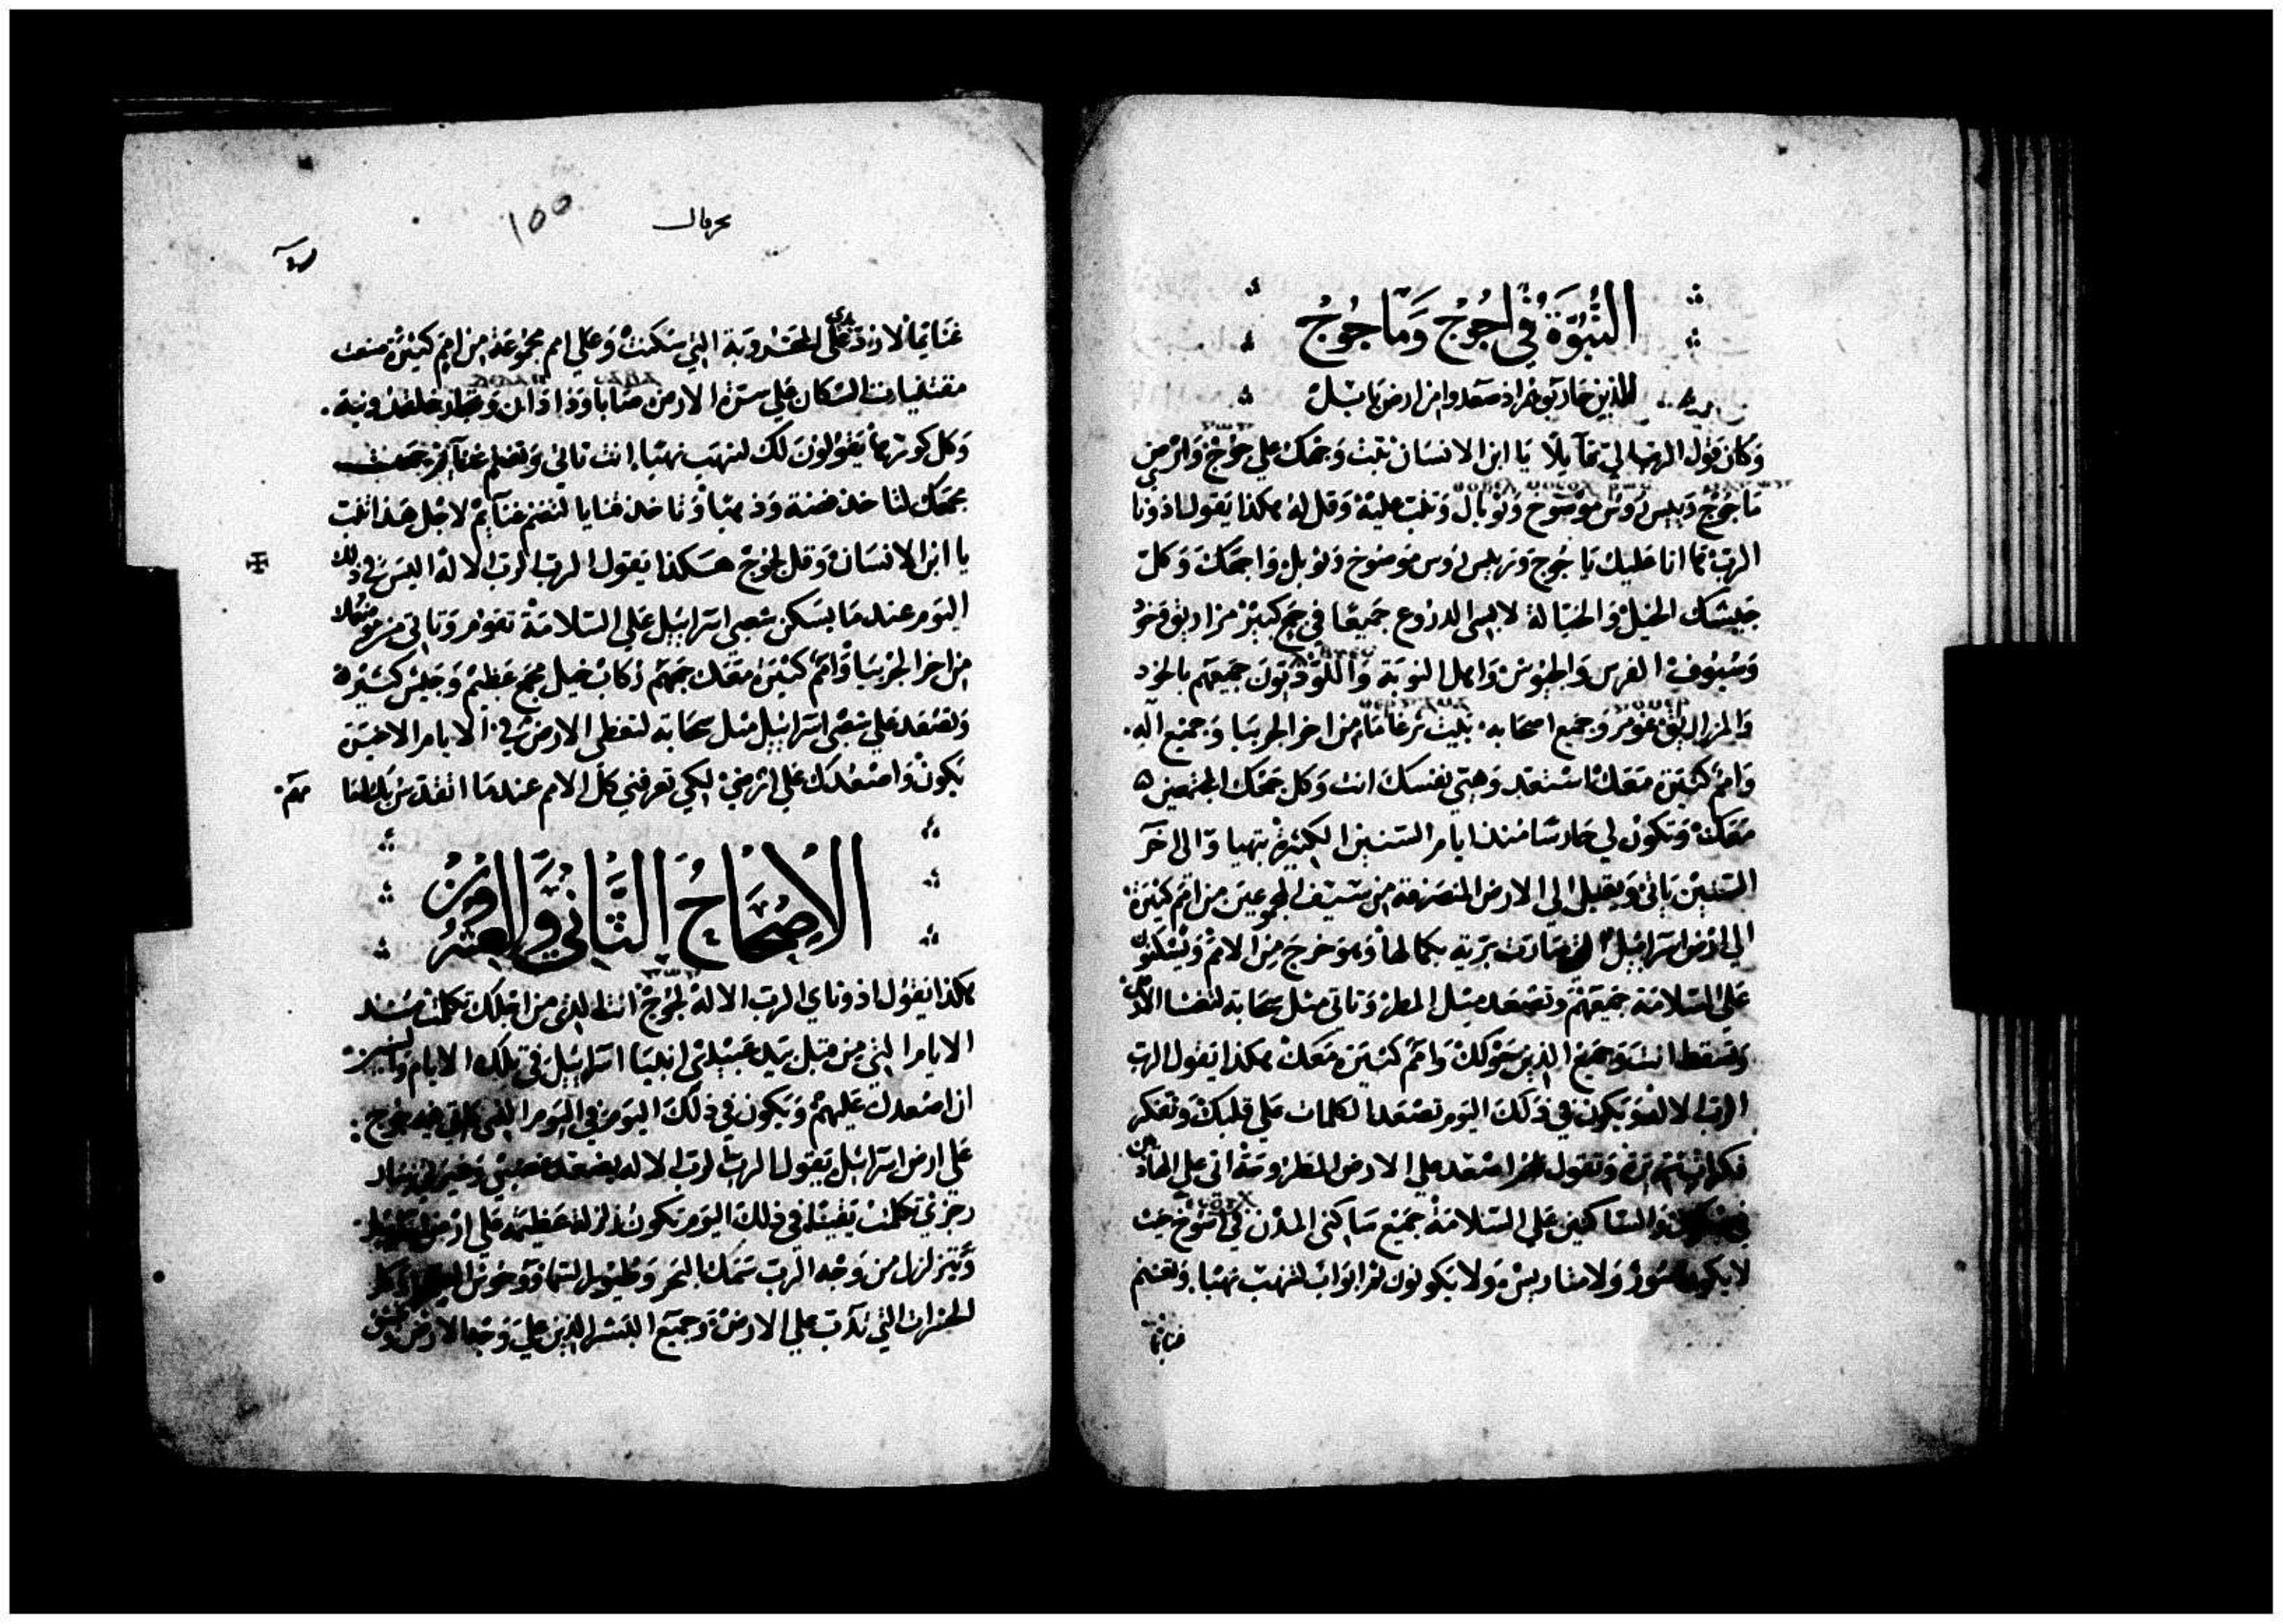 النبوة في اجوج وماجوج
الذين حاربوا اذ صعدوا من ارض بابل
وكان قول الرب الي قايلا يا ابن الانسان ثبت وجهك علي جوج وارض
ماجوج وريس روس موصوخ وثوبال وتنبا عليه وقل له هكذا يقول ادوناي
الرب ها انا عليك يا جوج وريس روس موصوخ وثوبل واجمعك وكل
جيشك الخيل والخيالة لابسي الدروع جميعا في جمع كبير مزاريق وخوذ
وسيوف الفرس والحبوش واهل النوبة واللوديون جميعهم بالخوذ
والمزاريق غومر وجميع اصحابه بيت ثرغاما من اخر الجربيا وجميع اله
وامم كثيرة معك استعد وهيي نفسك انت وكل جمعك المجتمعين
معك وتكون لي حارسا منذ ايام السنين الكثيرة يتهيا والى اخر
السنين ياتي ويقبل الي الارض المنصرفة من سيف المجموعين من امم كثيرة
الي ارض اسراييل التي صارت برية بكمالها وهو خرج من الامم ويسكنون
علي السلامة جميعهم وتصعد مثل المطر وتاتي مثل سحابة لتغشا الارض
وتسقط انت وجميع الذين حولك وامم كثيرة معك هكذا يقول الرب
الرب الاله ويكون في ذلك اليوم تصعد الكلمات علي قلبك وتفكر
وتقول اصعد علي الارض المطروحة اتي علي الهادين
والساكنين علي السلامة جميع ساكني المدن حيث
لا يكون سور ولا متاريس ولا يكونون لهم ابواب لتنهب نهبا وتغنم
غنايما
حزقيال
100
غنايما لارد يدي على المخروبة التي سكنت وعلي امم مجموعة من امم كثيرة صنعت
مقتنيات السكان علي سرة الارض صابا وذاذان
وكل كورتها يقولون لك لتنهب نهبا انت تاتي وتغنم غنايم جمعت
جمعك لتاخذ فضة وذهبا وتاخذ قنايا لتغنم غنايم لاجل هذا تنبا
يا ابن الانسان وقل لجوج هكذا يقول الرب الرب الاله اليس في ذلك
اليوم عندما يسكن شعبي اسراييل علي السلامة تقوم وتاتي من موضعك
من اخر الجربيا وامم كثيرة معك جميعهم ركاب خيل جمع عظيم وجيش كثير
وتصعد علي شعبي اسراييل مثل سحابة لتغطي الارض في الايام الاخيرة
يكون واصعدك علي ارضي لكي تعرفني كل الامم عندما اتقدس بك
الاصحاح الثاني والعشرون
هكذا يقول ادوناي الرب الاله لجوج انت الذي من اجلك تكلمت منذ
الايام التي من قبل بيد عبيدي انبيا اسراييل في تلك الايام والسنين
ان اصعدك عليهم ويكون في ذلك اليوم في اليوم الذي ياتي فيه جوج
علي ارض اسراييل يقول الرب الرب الاله يصعد غضبي
رجزي تكلمت يقينا في ذلك اليوم تكون زلزلة عظيمة علي ارض اسراييل
وتتزلزل من وجه الرب سمك البحر وطيور السما ووحوش
الحشرات التي تدب علي الارض وجميع البشر الذين علي وجه الارض